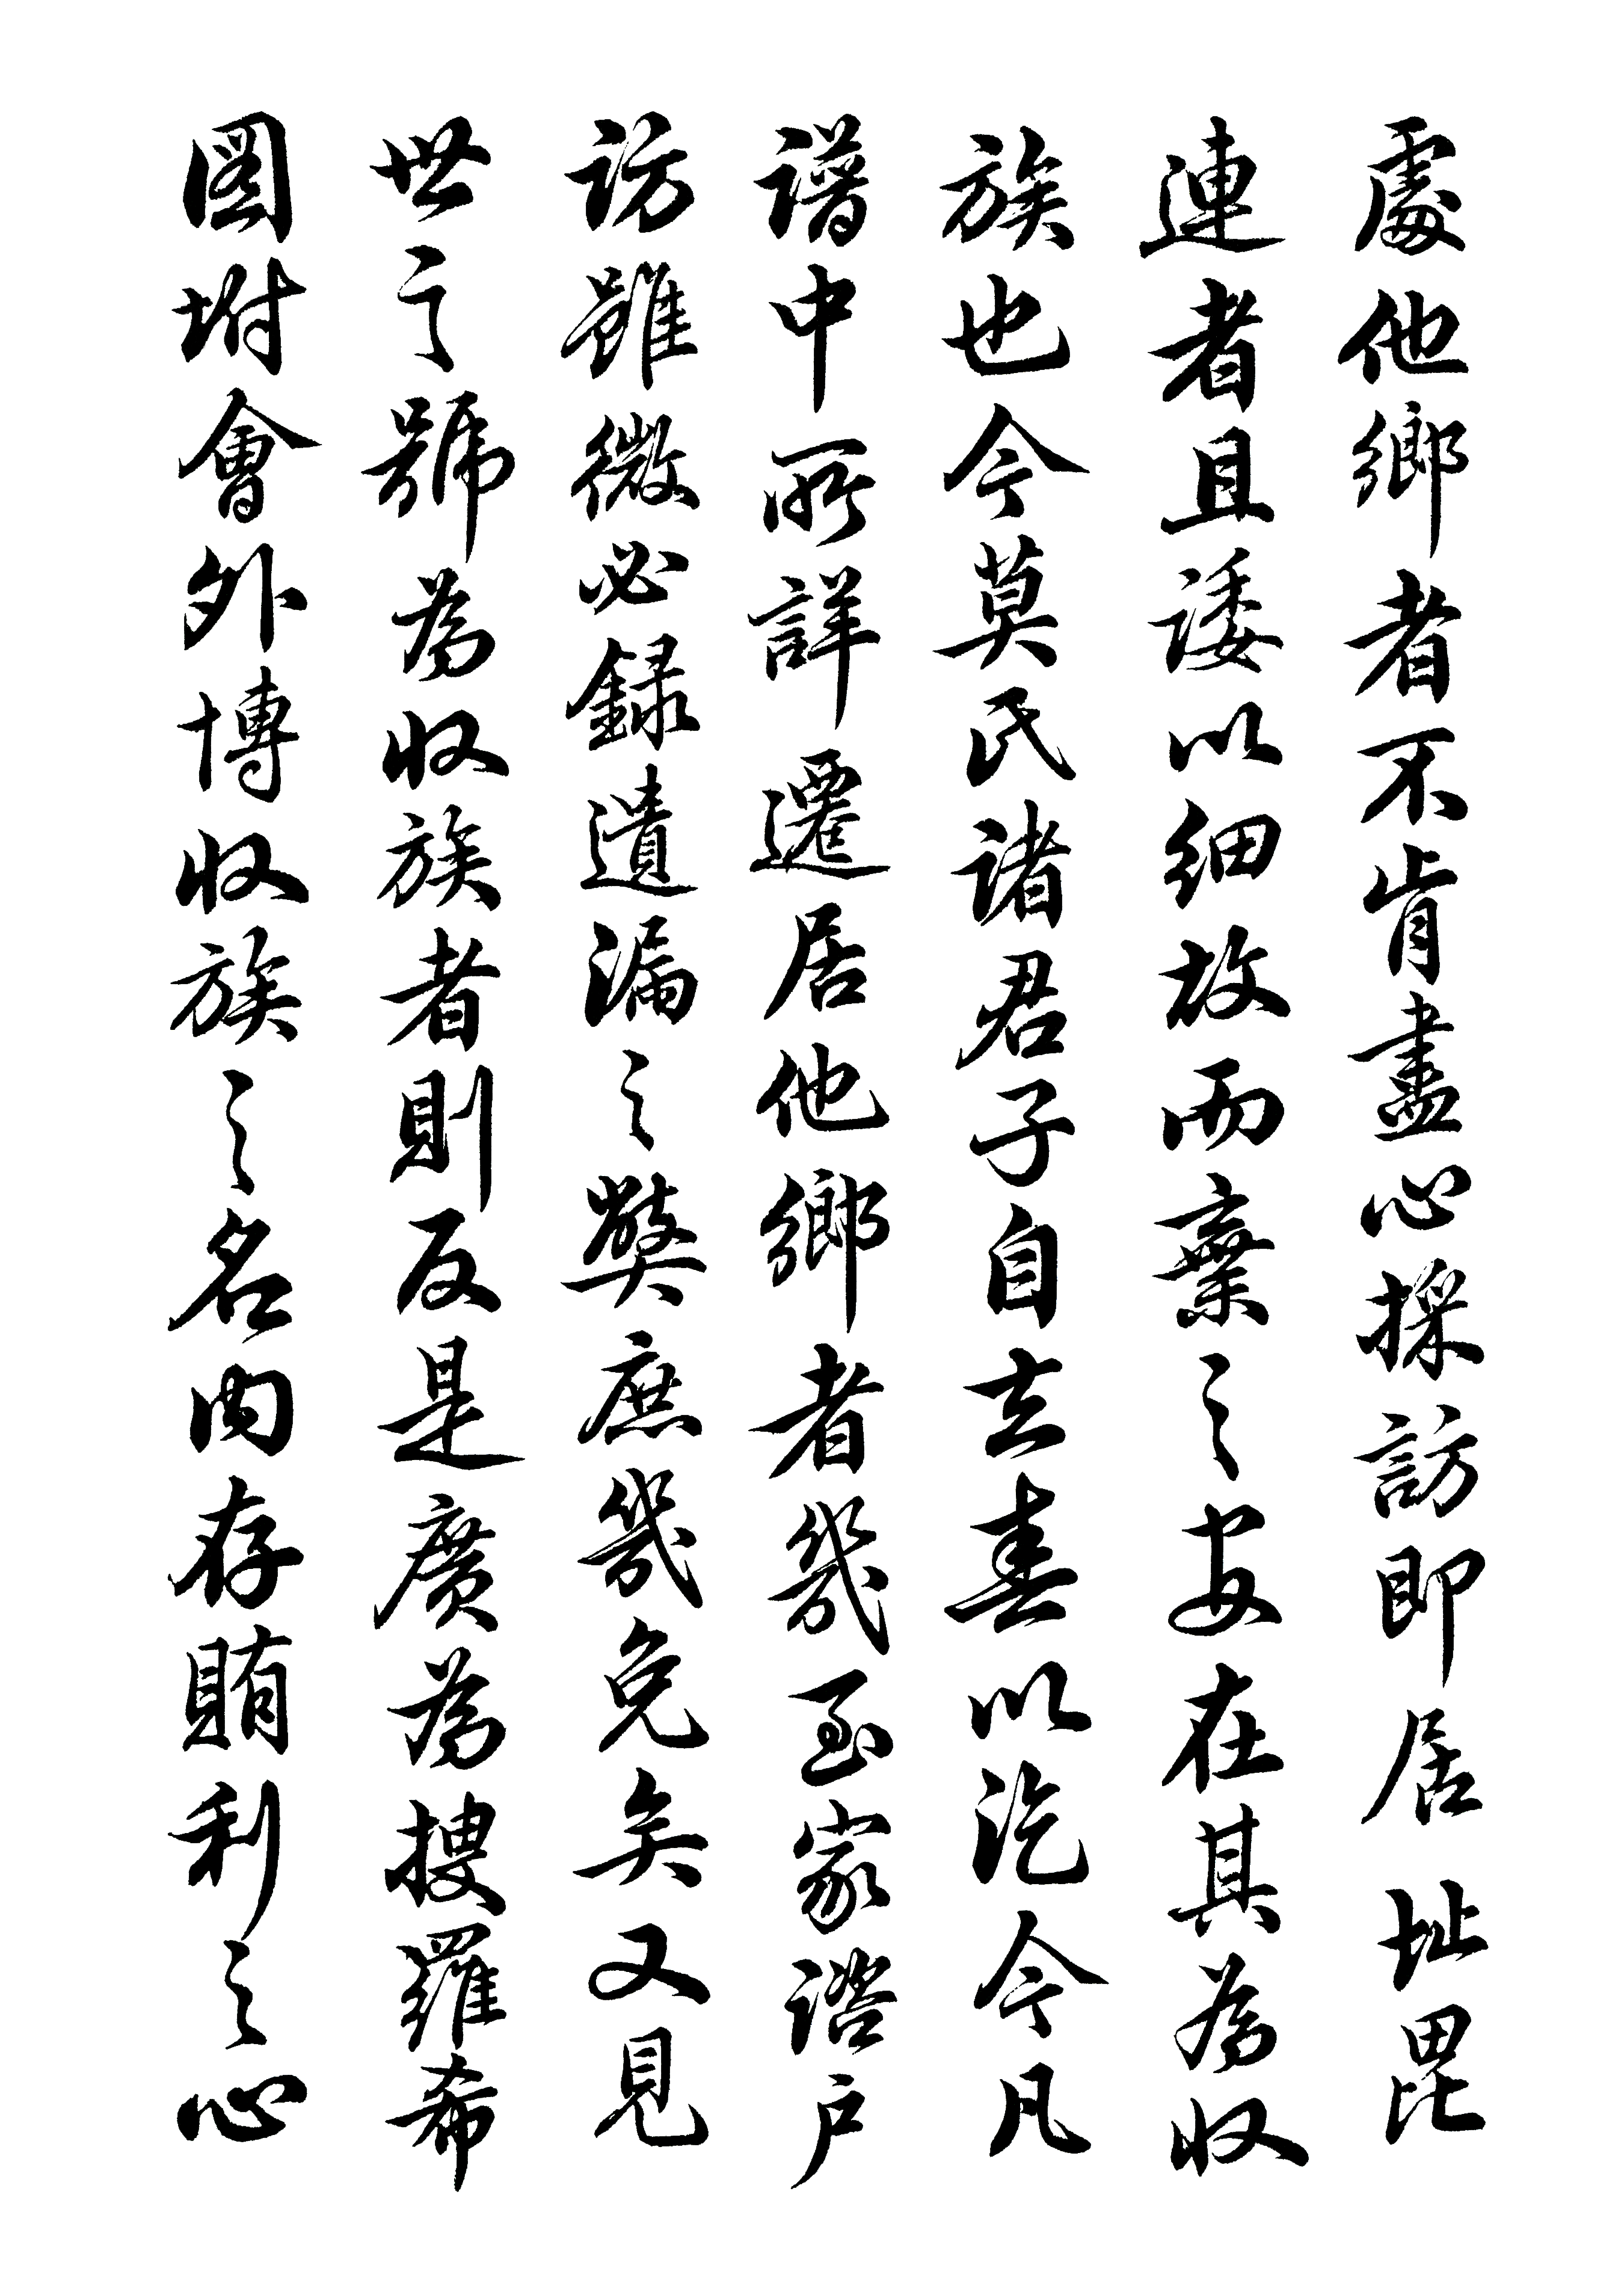 處他鄉者不肯盡心採訪即居址毘
連者且諉以細故而棄之安在其為收
族也今莫氏諸君子自立春以迄今凡
譜中所詳遷居他鄉者幾至家諮戶
訪雖微必錄遺漏之獘庶幾免矣又見
世之號為收族者則反是廣為搜羅希
圖坿會外博收族之名內存賄利之心